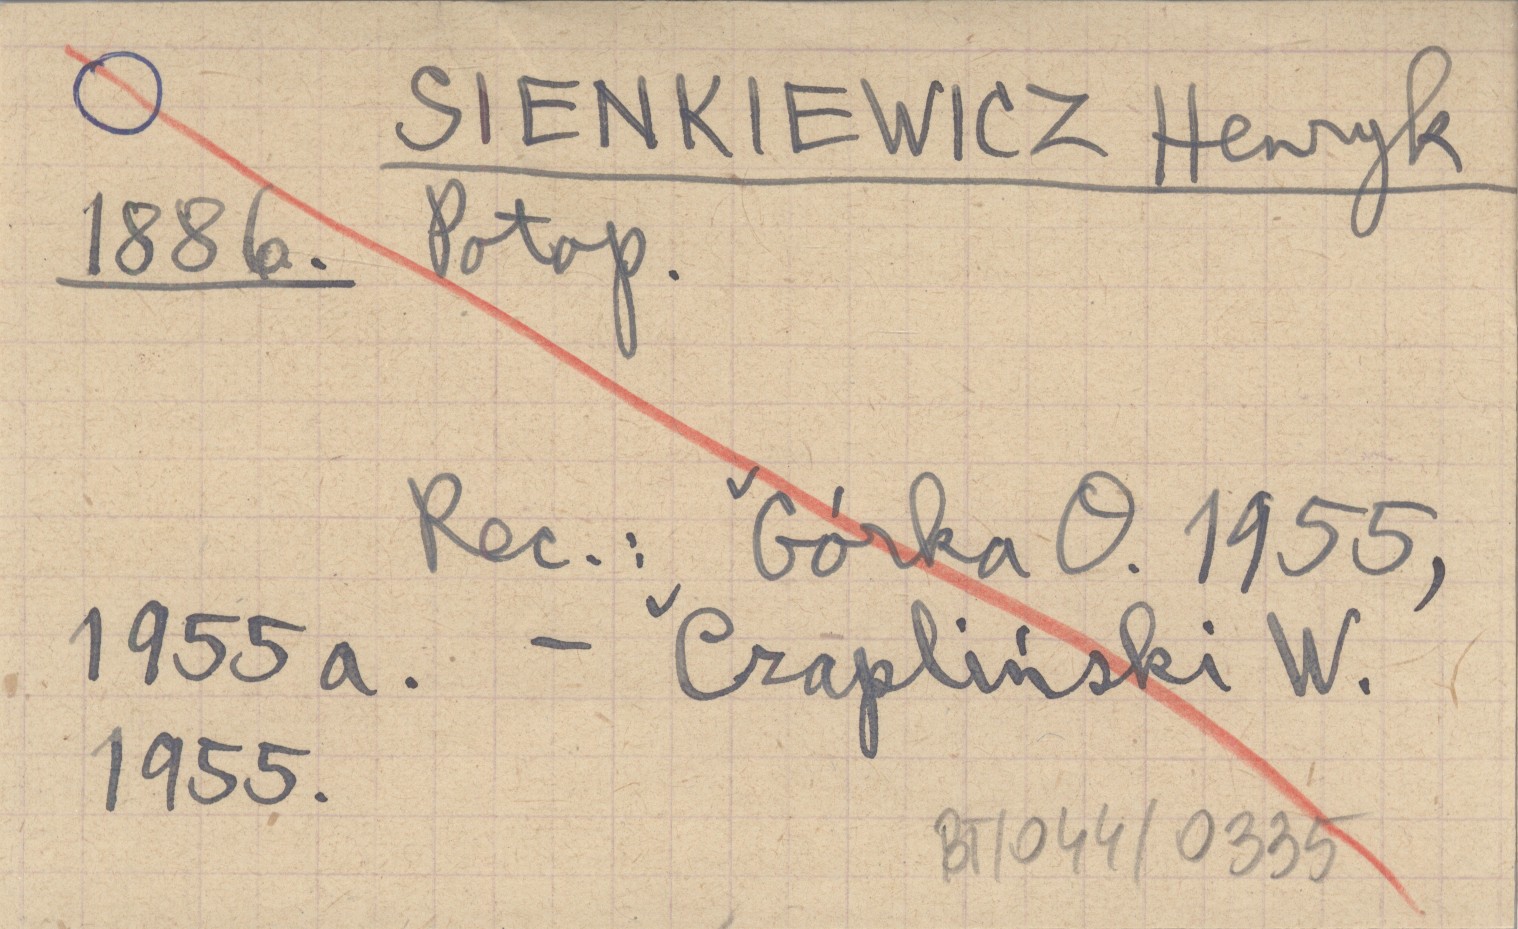 SIENKIEWICZ Henryk
1886. Potop.
Rec.: Górka O. 1955,
1955a. – Czapliński W.
1955.
BT/044/0335